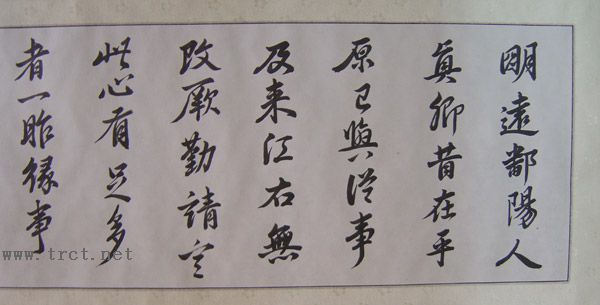 明遠鄱陽人
眞卿昔在平
原已與從事
及来江右無
改厥勤請言
此心有足多
者一昨緣事
www.trct.net